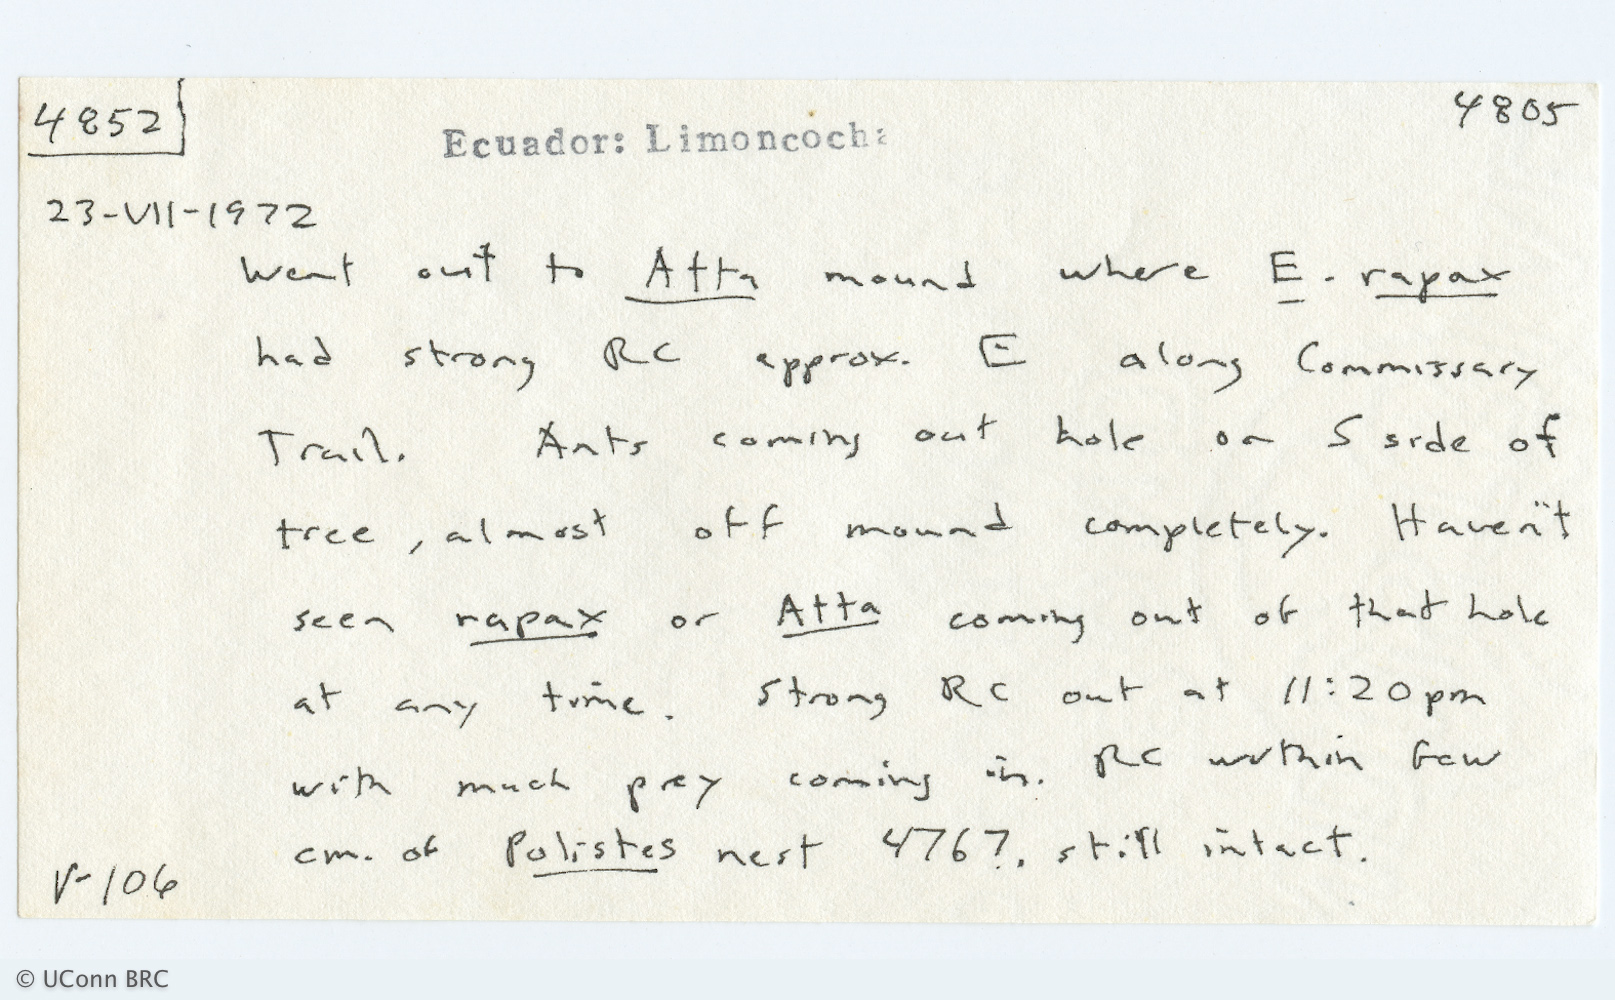 4852
4805
Ecuador: Limoncocha
23-VII-1972
Went out to Atta mound where E. rapax
had strong RC approx. E along Commissary
Trail. Ants coming out hole on S side of
tree, almost off mound completely. Haven't
seen rapax or Atta coming out of that hole
at any time. Strong RC out at 11:20pm
with much prey coming in. RC within few
cm. of Polistes nest 4767, still intact.
V-106
© UConn BRC